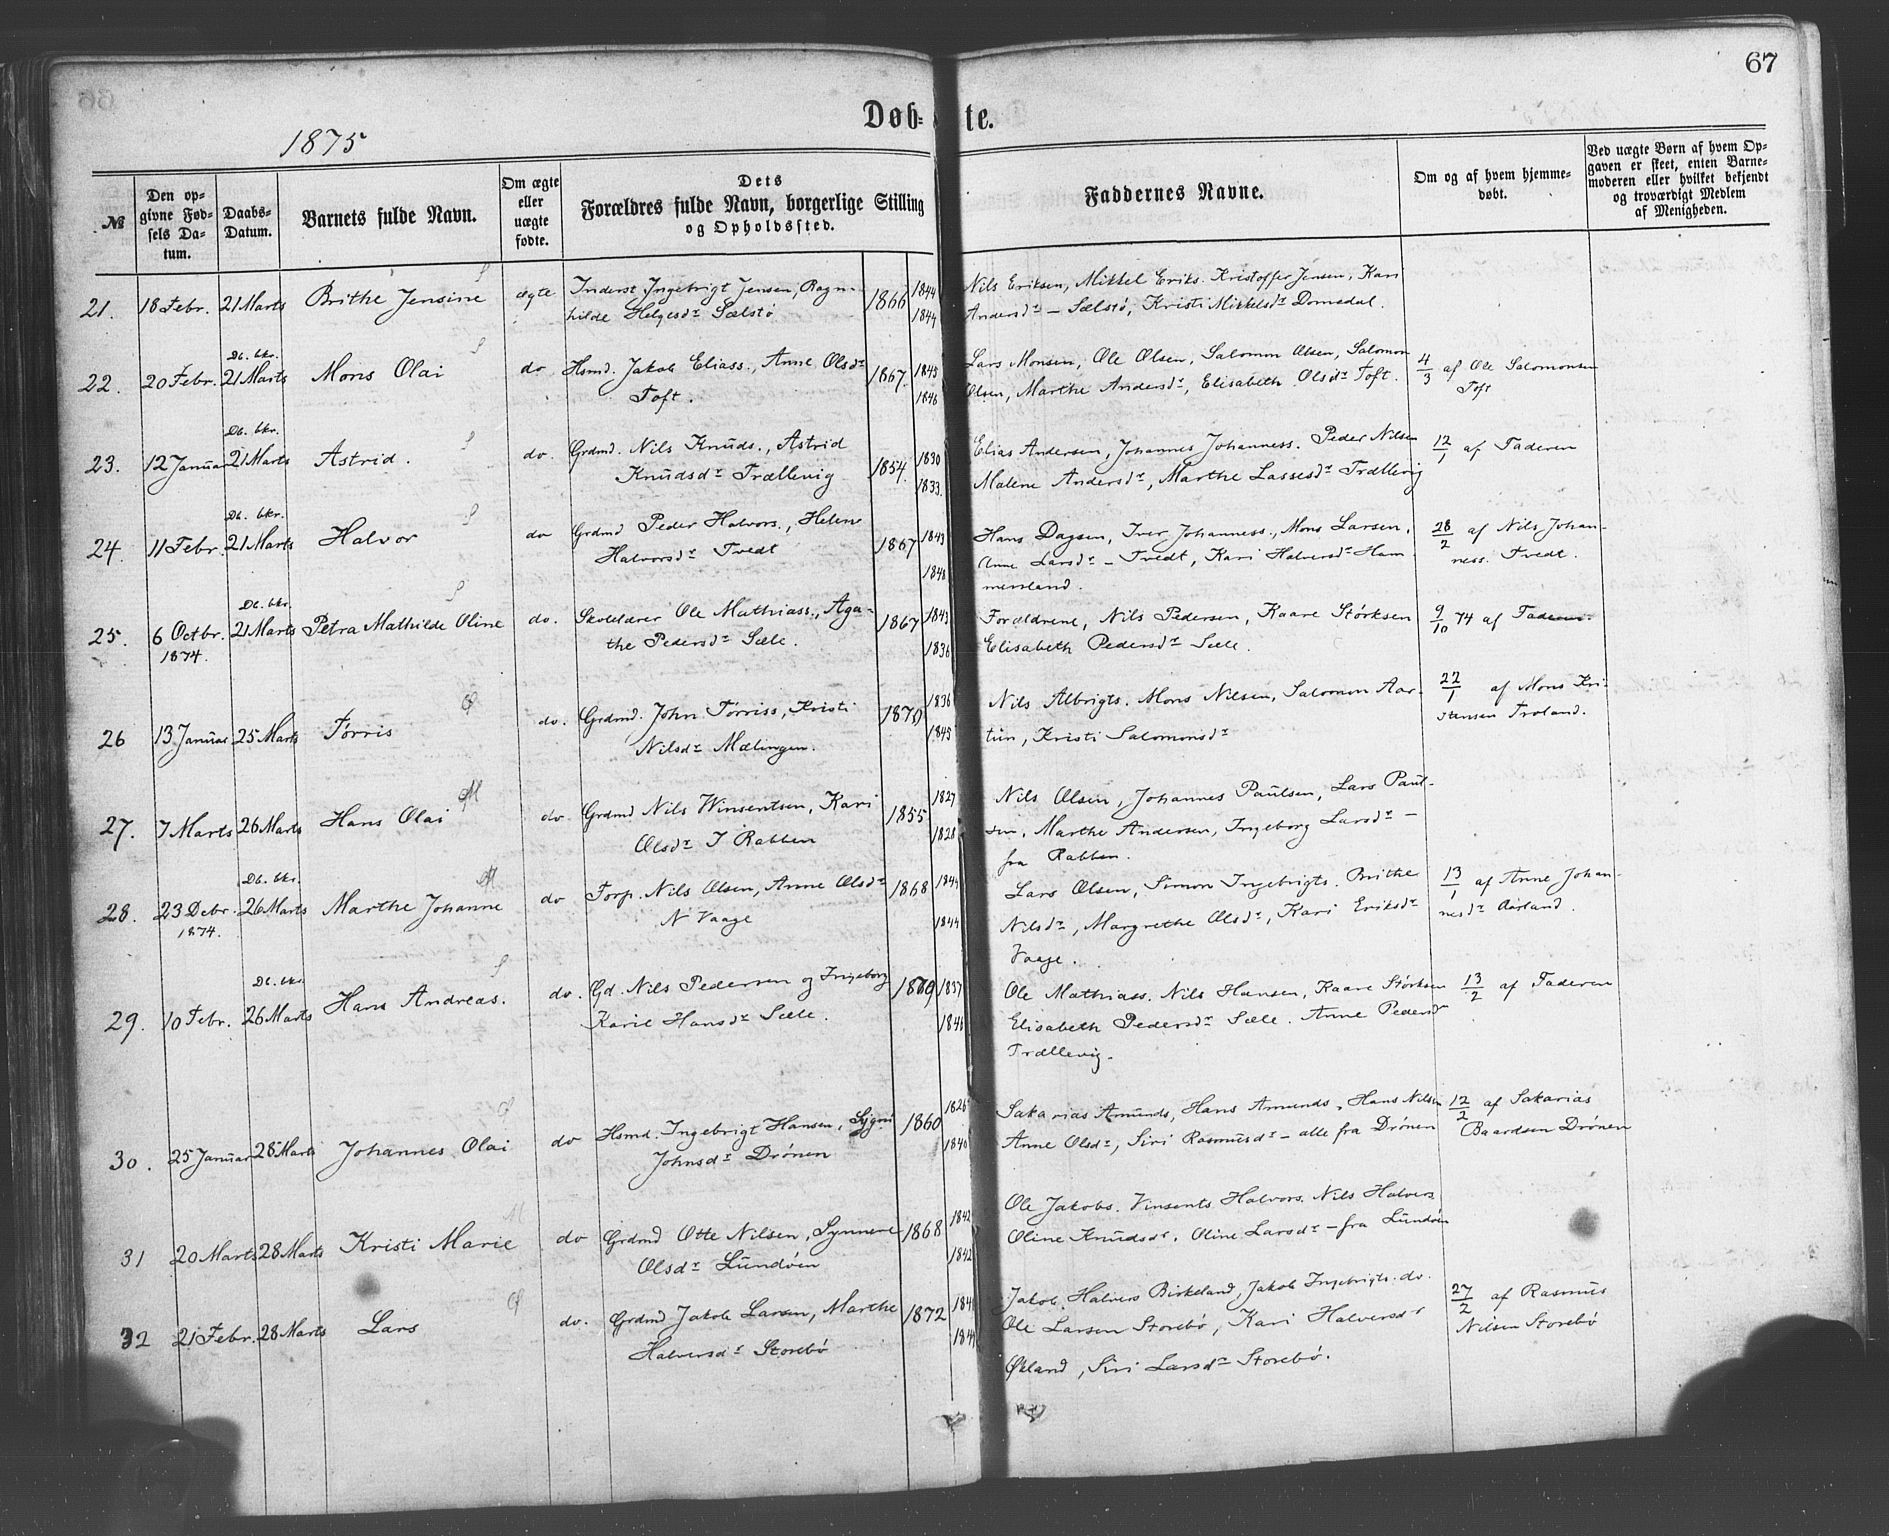 67
Døb-   te.
1875
№ | Den opgivne Fødsels Datum. | Daabs-Datum. | Barnets fulde Navn. | Om ægte eller uægte fødte. | Dets Forældres fulde Navn, borgerlige Stilling og Opholdssted. | Faddernes Navne. | Om og af hvem hjemmedøbt. | Ved uægte Børn af hvem Opgaven er skeet, enten Barnemoderen eller hvilket bekjendt og troværdigt Medlem af Menigheden.
21. 18 Febr. 21 Marts Brithe Jensine ægte Inderst Ingebrigt Jensen, Ragn- 1866 1844 Nils Eriksen, Mikkel Eriks. Kristoffer Jensen, Kari
hilde Helgesdr Sælstø 1844 Andersdr – Sælstø, Kristi Mikkelsdr Domsdal.
Db. bkr.
22. 20 Febr. 21 Marts Mons Olai do Hsmd. Jakob Eliass., Anne Olsdr 1867. 1845 Lars Monsen, Ole Olsen, Salomon Olsen, Salomon 4/3 af Ole Salomonsen
Toft. 1846 Olsen, Marthe Andersdr, Elisabeth Olsdr Toft. Toft
Db. bkr.
23. 12 Januar 21 Marts Astrid. do. Grdmd. Nils Knuds., Astrid 1854. 1830 Elias Andersen, Johannes Johanness. Peder Nilsen 12/1 af Faderen
Knudsdr Trællevig 1833. Malene Andersdr, Marthe Lassesdr Trællevig
Db. bkr.
24. 11 Febr. 21 Marts Halvor do Grdmd Peder Halvors., Helene 1867 1843 Hans Dagsen, Iver Johanness., Mons Larsen, 28/2 af Nils Johan-
Halvorsdr Tvedt 1840 Anne Larsdr – Tvedt, Kari Halversdr Ham ness. Tvedt.
mersland.
Db. bkr.
25. 6 Octbr. 21 Marts Petra Mathilde Oline do. Skolelærer Ole Mathiass., Aga- 1867 1843 Forældrene, Nils Pedersen, Kaare Størksen 9/10 74 af Faderen.
1874. the Pedersdr Sæle. 1836 Elisabeth Pedersdr Sæle.
26 13 Januar 25 Marts Tørris do. Grdmd. John Tørriss, Kristi 1870 1836 Nils Albrigts. Mons Nilsen, Salomon Aar- 22/1 af Mons Kri-
Nilsdr Mælingen. 1845 tun, Kristi Salomonsdr stensen Troland.
27. 7 Marts 26 Marts Hans Olai do. Grdmd Nils Winsentsen, Kari 1855 1827 Nils Olsen, Johannes Paulsen, Lars Paul-
Olsdr I Rabben 1828 sen, Marthe Andersen, Ingeborg Larsdr –
fra Rabben.
Db. bkr.
28. 23 Debr. 26 Marts Marthe Johanne do Torp. Nils Olsen, Anne Olsdr 1868 1844 Lars Olsen, Simon Ingebrigts. Brithe 13/1 af Anne Johan-
1874. N Vaage 1844 Nilsdr, Margrethe Olsdr, Kari Eriksdr nesdr Aarland.
Vaage.
Db. bkr.
29. 10 Febr. 26 Marts Hans Andreas. do. Gd. Nils Pedersen og Ingeborg 1869 1837 Ole Mathiass. Nils Hansen, Kaare Størksen 13/2 af Faderen
Karie Hansdr Sæle. 1846 Elisabeth Pedersdr Sæle. Anne Pedersdr
Trællevig.
30. 25 Januar 28 Marts Johannes Olai do Hsmd. Ingebrigt Hansen, Sygni 1860 1826 Sakarias Amunds, Hans Amunds, Hans Nilsen 12/2 af Sakarias
Johnsdr Drønen 1840 Anne Olsdr, Siri Rasmusdr – alle fra Drønen Baardsen Drønen
31 20 Marts 28 Marts Kristi Marie do Grdmd Otte Nilsen, Synneve 1868 1842 Ole Jakobs. Vinsents Halvors. Nils Halvers
Olsdr Lundøen 1842 Oline Knudsdr, Oline Larsdr – fra Lundøen
32 21 Febr. 28 Marts Lars do. Grdmd Jakob Larsen, Marthe 1872 Jakob Halvers Birkeland, Jakob Ingebrigts. do. 27/2 af Rasmus
Halversdr Storebø Ole Larsen Storebø, Kari Halversdr Nilsen Storebø
Økland, Siri Larsdr Storebø.